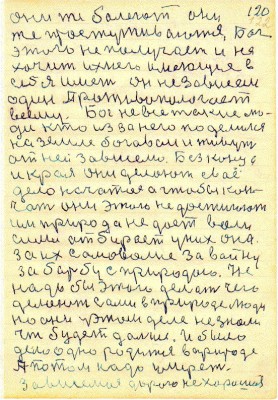 120
они же болеют они
же простуживаются, Бог
этого не получает и не
хочит их него имеющие в
себя имет он независем
один Противополагает
всему. Бог не все такие лю-
ди кто из за него поделился
на земле богавом и живут
от ней зависемо. Без конца
и края они делают своё
дело начатое а чтобы кон-
чат они этого не достигают
им природа не дает воли
силы отбирает у них она.
за их самоволие за вайну
за барьбу с природою. Не
надо бы этого делат чего
делают сами в природе люди
но они в этом деле не знали
что будет дальше. И было
дело одно родится в природе
А потом надо умереть.
зависемая дорога не хорошая